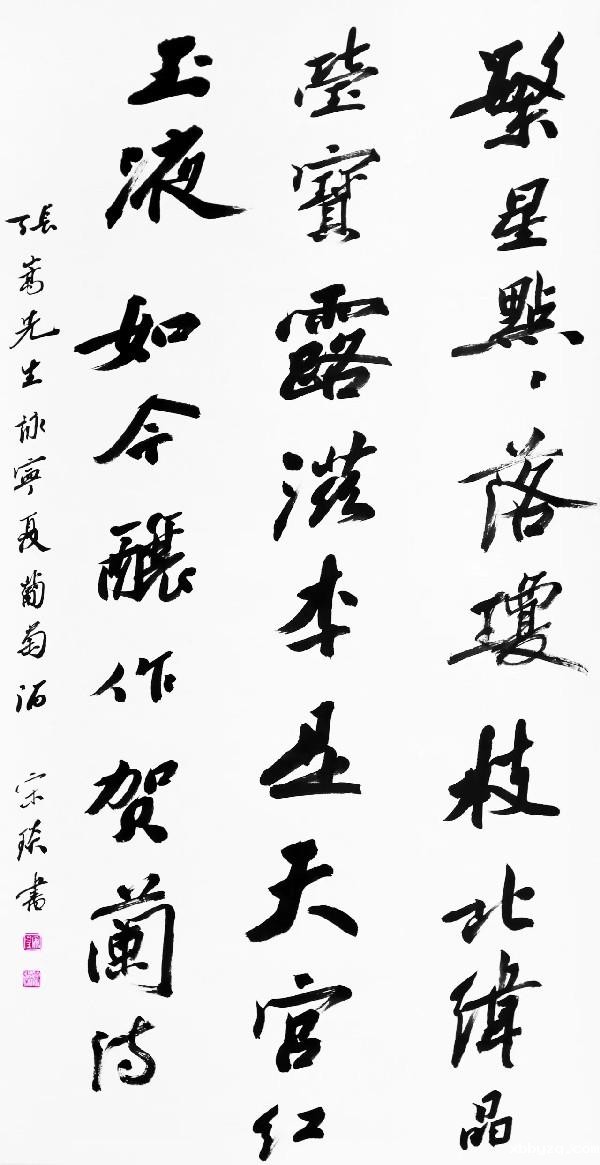 繁星點々落瓊枝北緯晶
瑩寶露滋本是天宮紅
玉液如今釀作贺蘭诗
張嵩先生詠寧夏葡萄酒 宋書